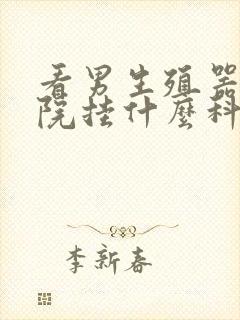 看男生殖器
院挂什麼科
李新春